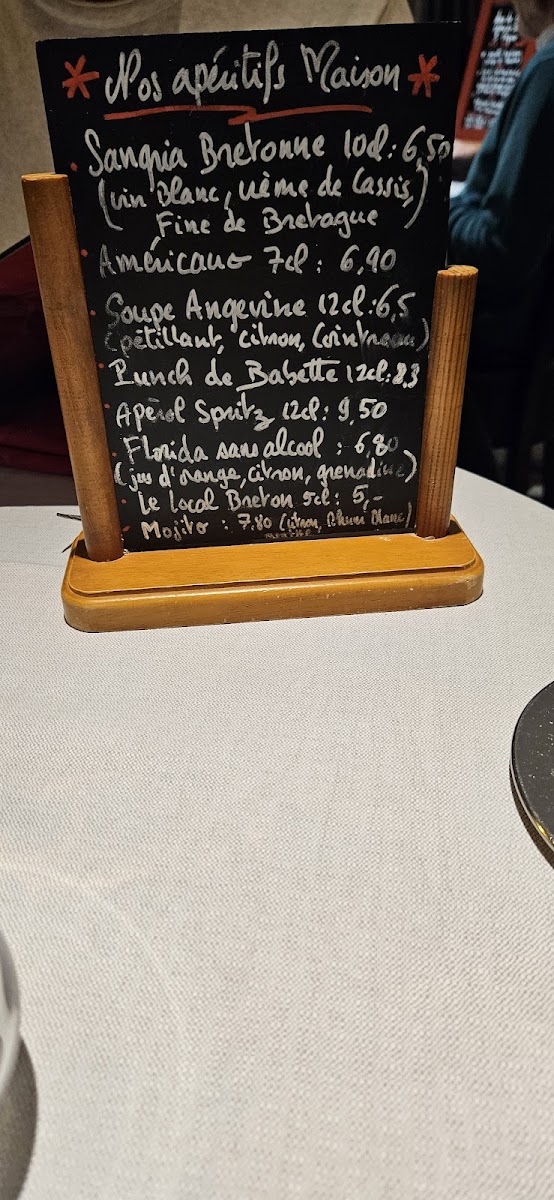 * Nos apéritifs Maison *
Sangria Bretonne 10cl: 6,50
(vin Blanc, crème de Cassis,)
Fine de Bretagne
Américano 7cl: 6,90
Soupe Angevine 12cl: 6,5
(pétillant, citron, Cointreau)
Punch de Babette 12cl: 8,3
Apérol Spritz 12cl: 9,50
Florida sans alcool : 6,80
(jus d'orange, citron, grenadine)
Le local Breton 5cl: 5,-
Mojito : 7,80 (citron, Rhum Blanc)
MENTHE